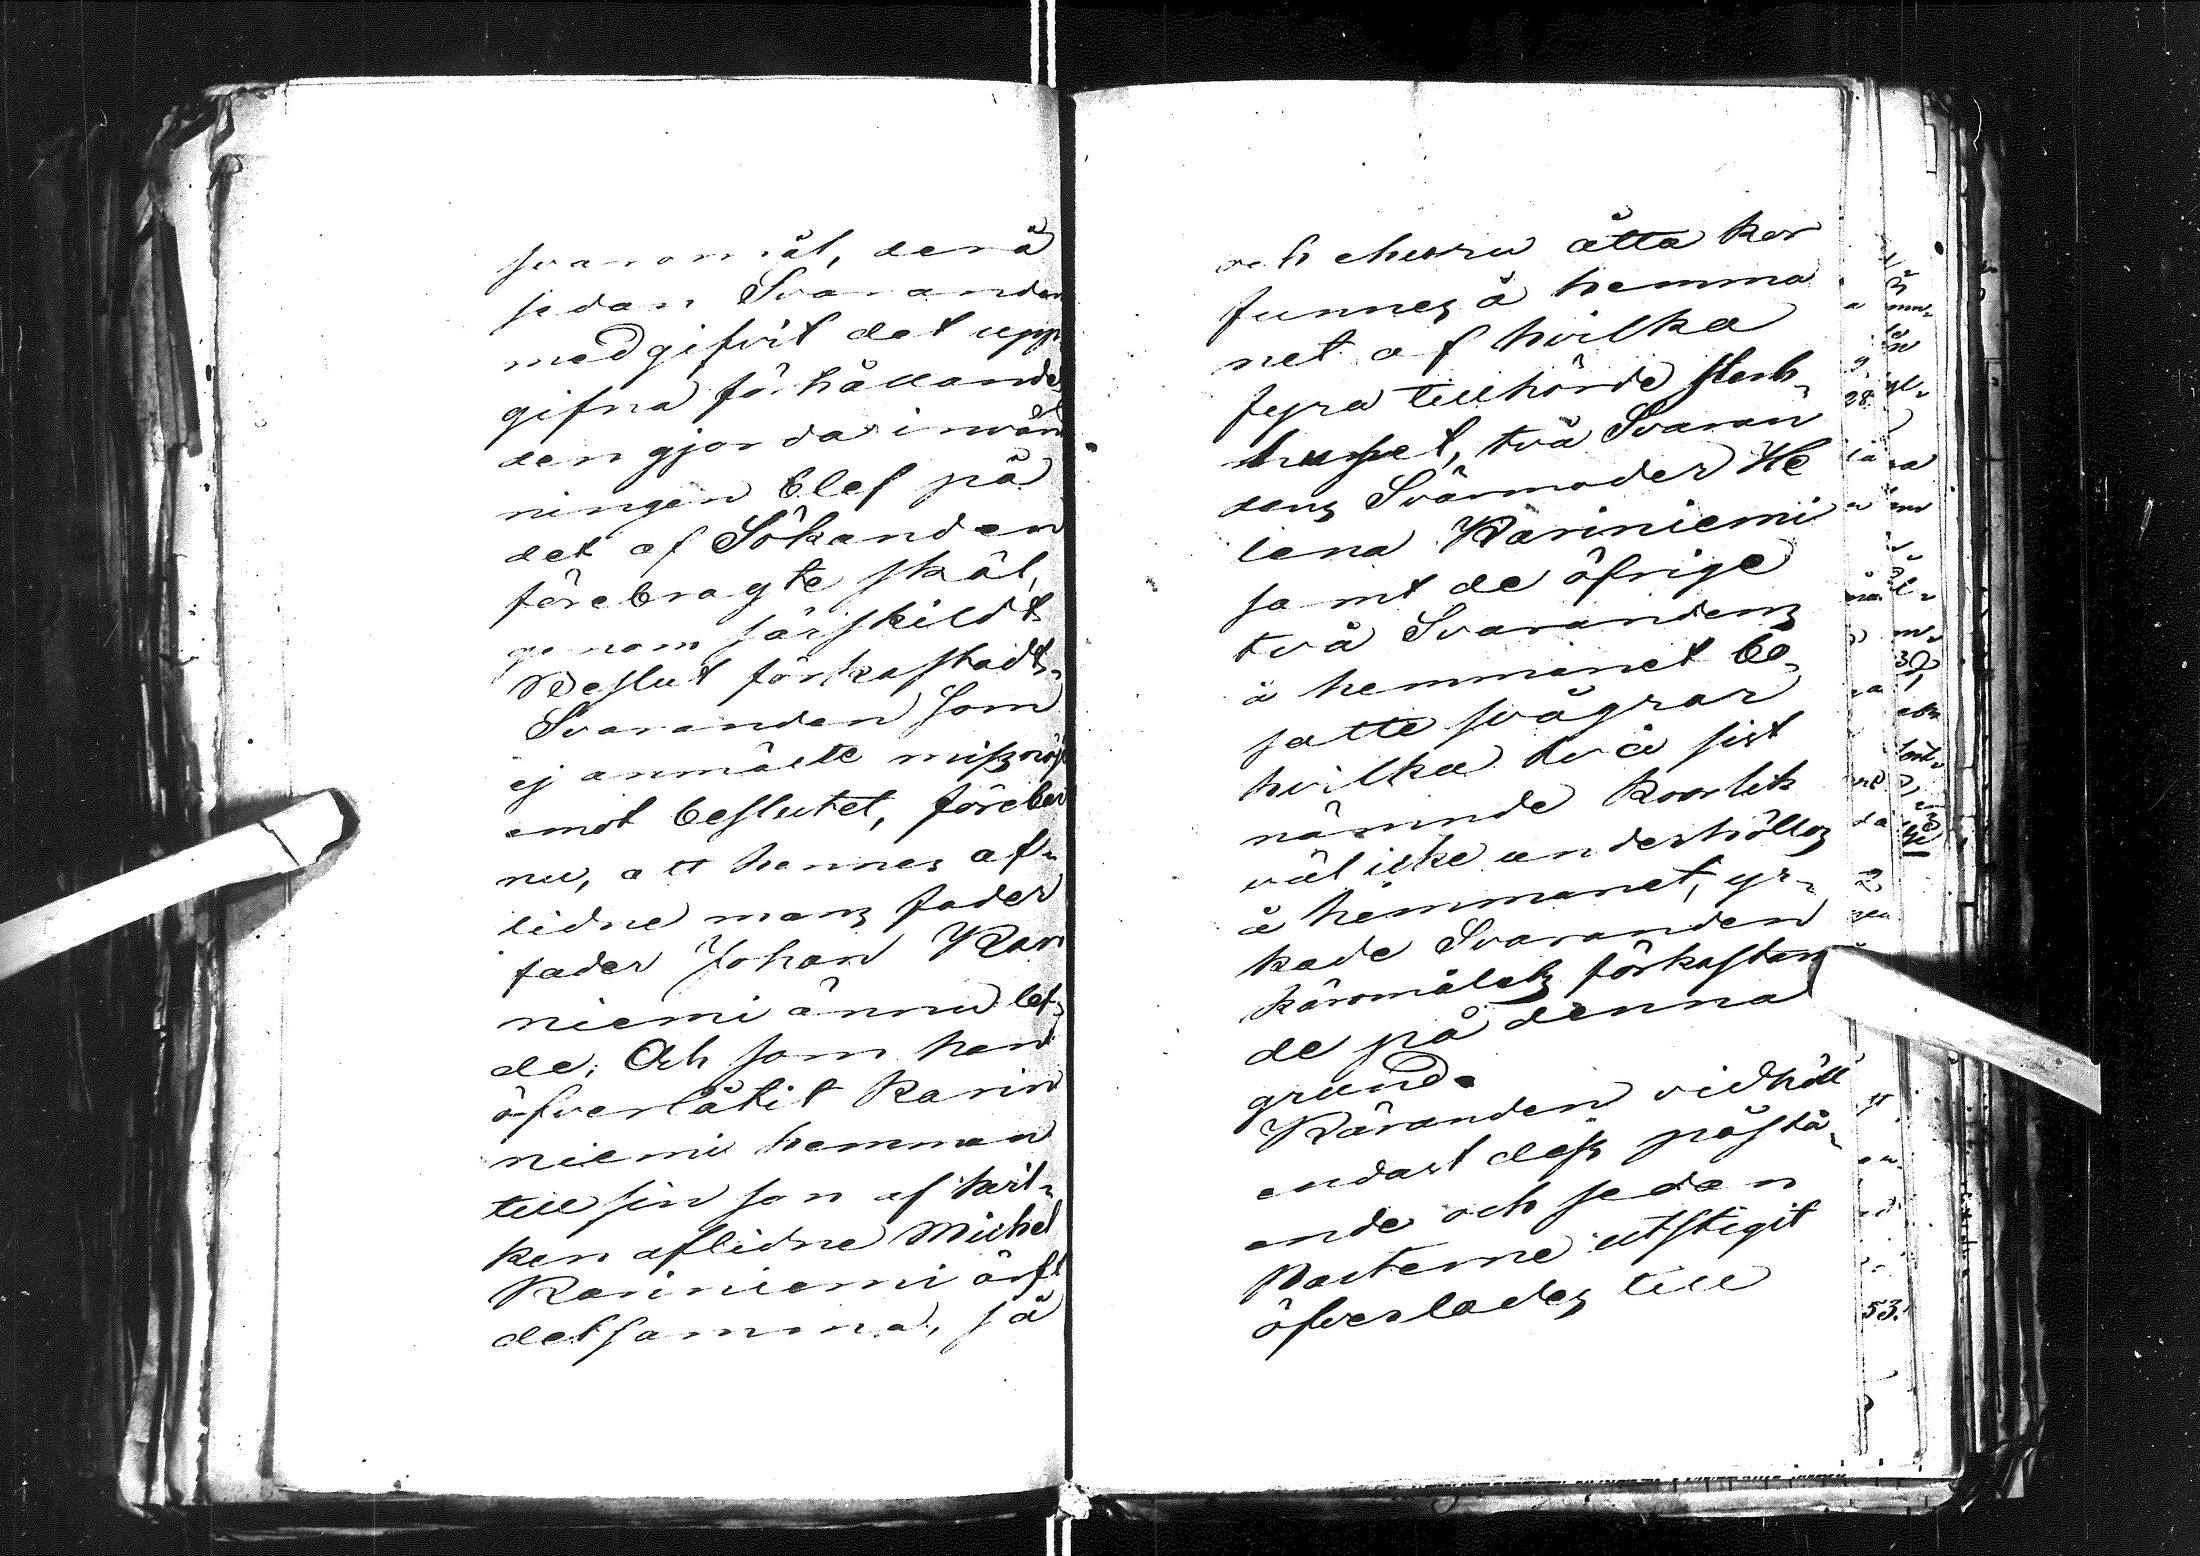 svaromål, derå
sedan Svaranden
medgifvit det upp
gifna förhållandet
den gjorda invänd
ningen blef på
det af Sökanden
förebragte skäl,
genom särskildt
Beslut förkastadt.
Svaranden som
ej anmälte missnöje
emot beslutet, förebar
nu, att hennes af-
lidne mans fader
fader Johan Kari
niemi ännu lef-
de. Och som han
öfverlåtit Karin
niemi hemman
till sin son af hvil-
ken aflidne Michel
Kariniemi ärft
detsamma, så
och ehuru åtta kor
funnes å hemma
net af hvilka
fyra tillhörde sterb-
huset, två Svaran
dens Svärmoder He
lena Kariniemi
samt de öfrige
två Svarandens
å hemmanet bo-
satte svågrar
hvilka två sist
nämnde koorlik
väl icke underhölles
å hemmanet, yr-
kade Svaranden
käromålets förkastan
de på denna
grund.
Käranden vidhöll
endast dess påstå-
ende och sedan
Parterne utstigit
öfverlades till
28
53.